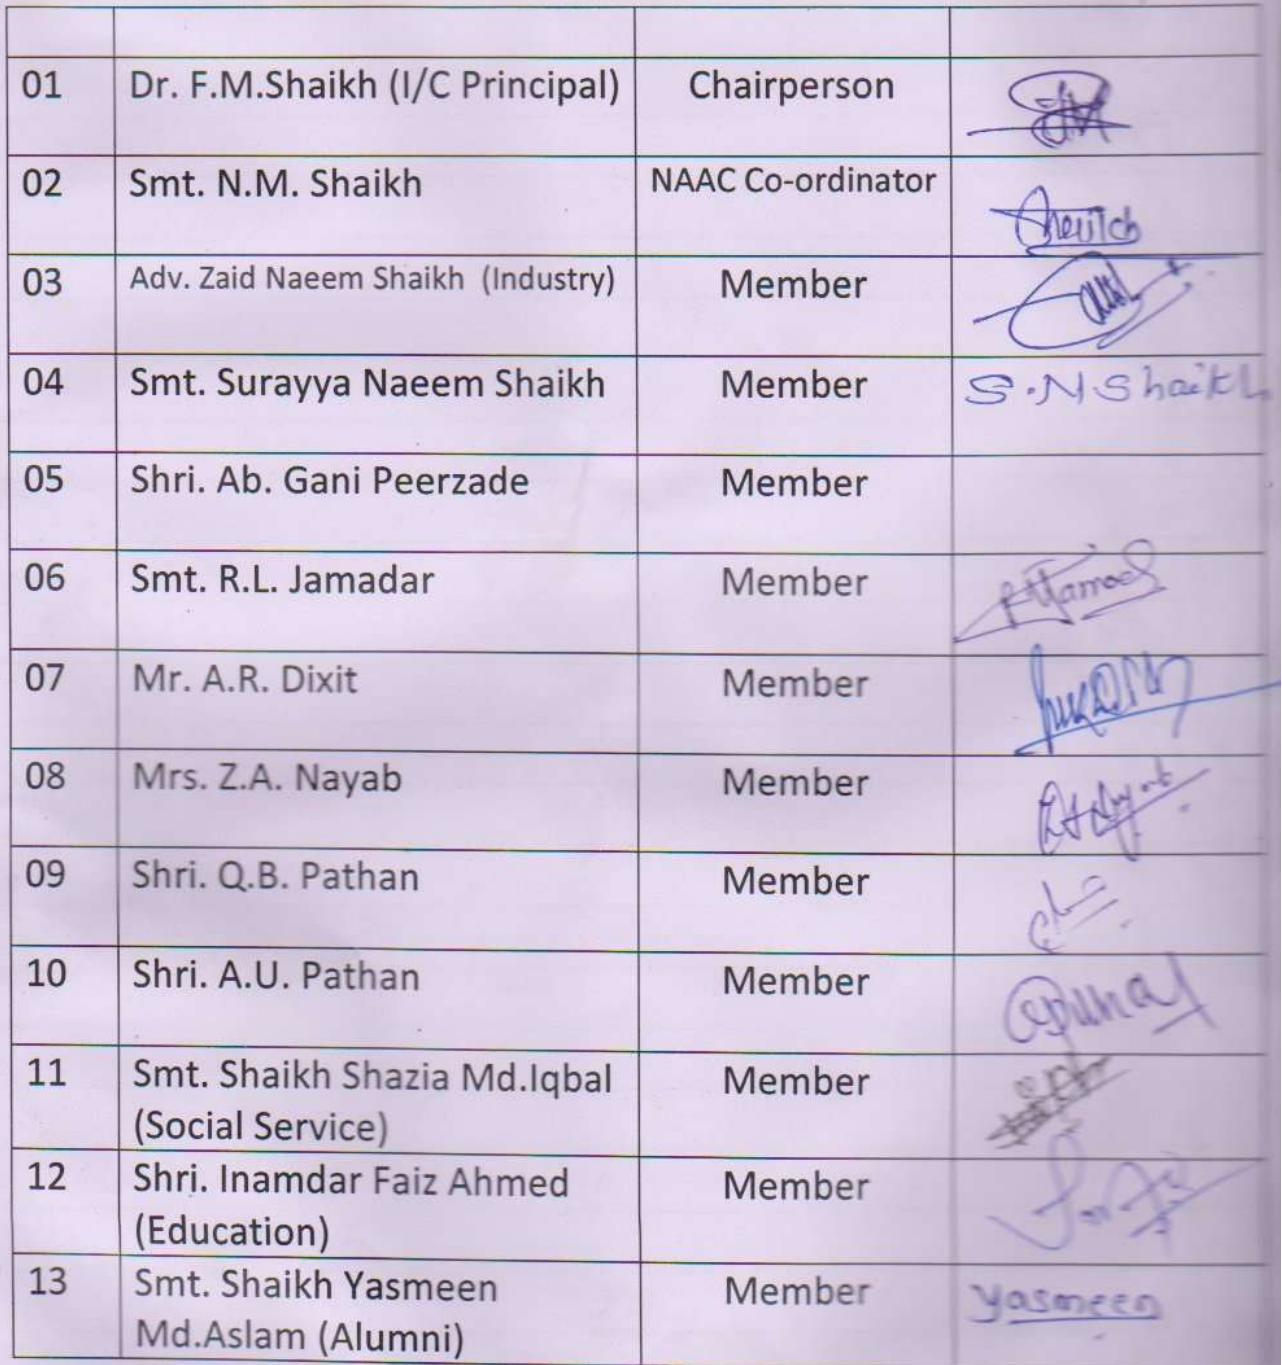 01 Dr. F.M.Shaikh (I/C Principal) Chairperson
02 Smt. N.M. Shaikh NAAC Co-ordinator
03 Adv. Zaid Naeem Shaikh (Industry) Member
04 Smt. Surayya Naeem Shaikh Member S.N Shaikh
05 Shri. Ab. Gani Peerzade Member
06 Smt. R.L. Jamadar Member
07 Mr. A.R. Dixit Member
08 Mrs. Z.A. Nayab Member
09 Shri. Q.B. Pathan Member
10 Shri. A.U. Pathan Member
11 Smt. Shaikh Shazia Md.Iqbal Member
(Social Service)
12 Shri. Inamdar Faiz Ahmed Member
(Education)
13 Smt. Shaikh Yasmeen Member Yasmeen
Md.Aslam (Alumni)